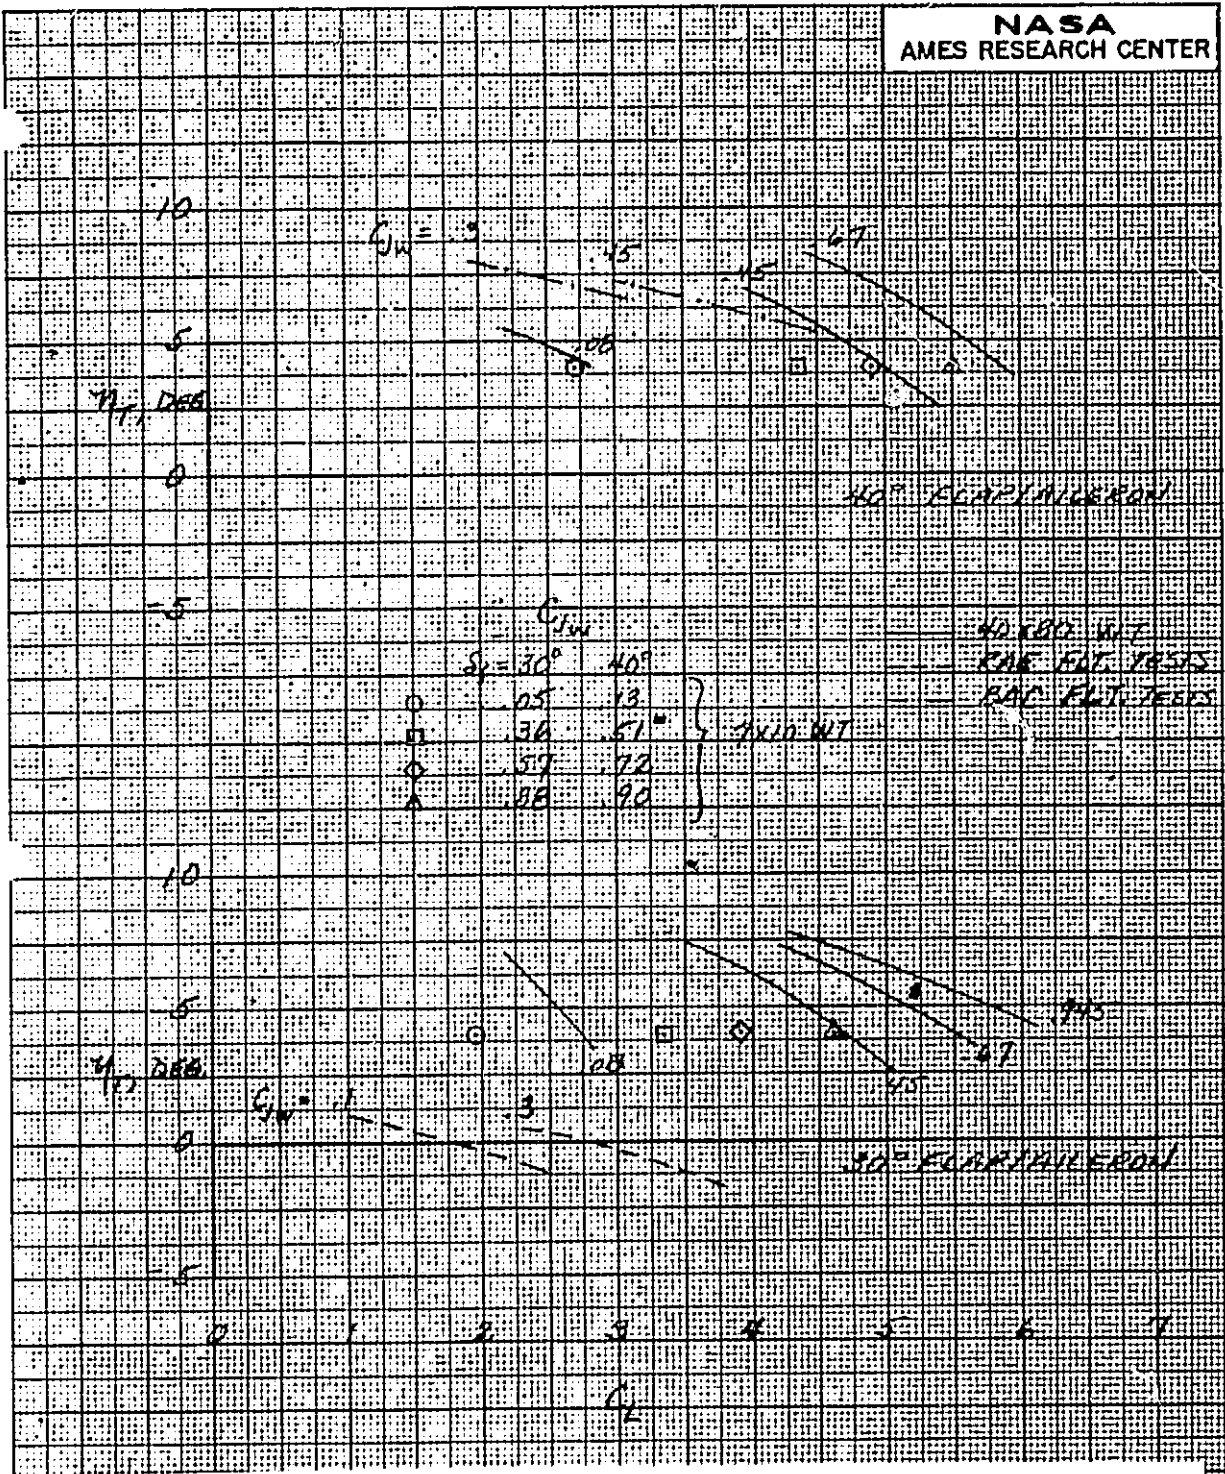 NASA
AMES RESEARCH CENTER
10
C_JW = .3
.45
.45
.67
5
.08
η_T, DEG
0
40° FLAP/AILERON
-5
C_JW
δ_f = 30° 40°
.05 .13
.36 .51
.57 .72
.88 .90
7X10 WT
40 x 80 WT
RAE FLT. TESTS
BAC FLT. TESTS
10
5
.945
.67
η_T, DEG.
.08
.45
C_JW = .1
.3
0
30° FLAP/AILERON
-5
0 1 2 3 4 5 6 7
C_L